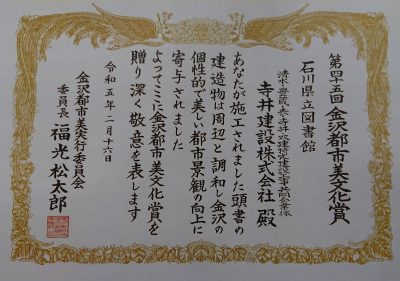 第四十五回 金沢都市美文化賞
石川県立図書館
寺井建設株式会社 殿
あなたが施工されました頭書の
建造物は周辺と調和し金沢の
個性的で美しい都市景観の向上に
寄与されました
よってここに金沢都市美文化賞を
贈り深く敬意を表します
令和五年二月十六日
金沢都市美実行委員会
委員長 福光松太郎